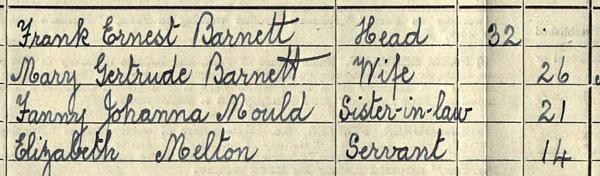 Frank Ernest Barnett Head 32
Mary Gertrude Barnett Wife 26
Fanny Johanna Mould Sister-in-law 21
Elizabeth Melton Servant 14